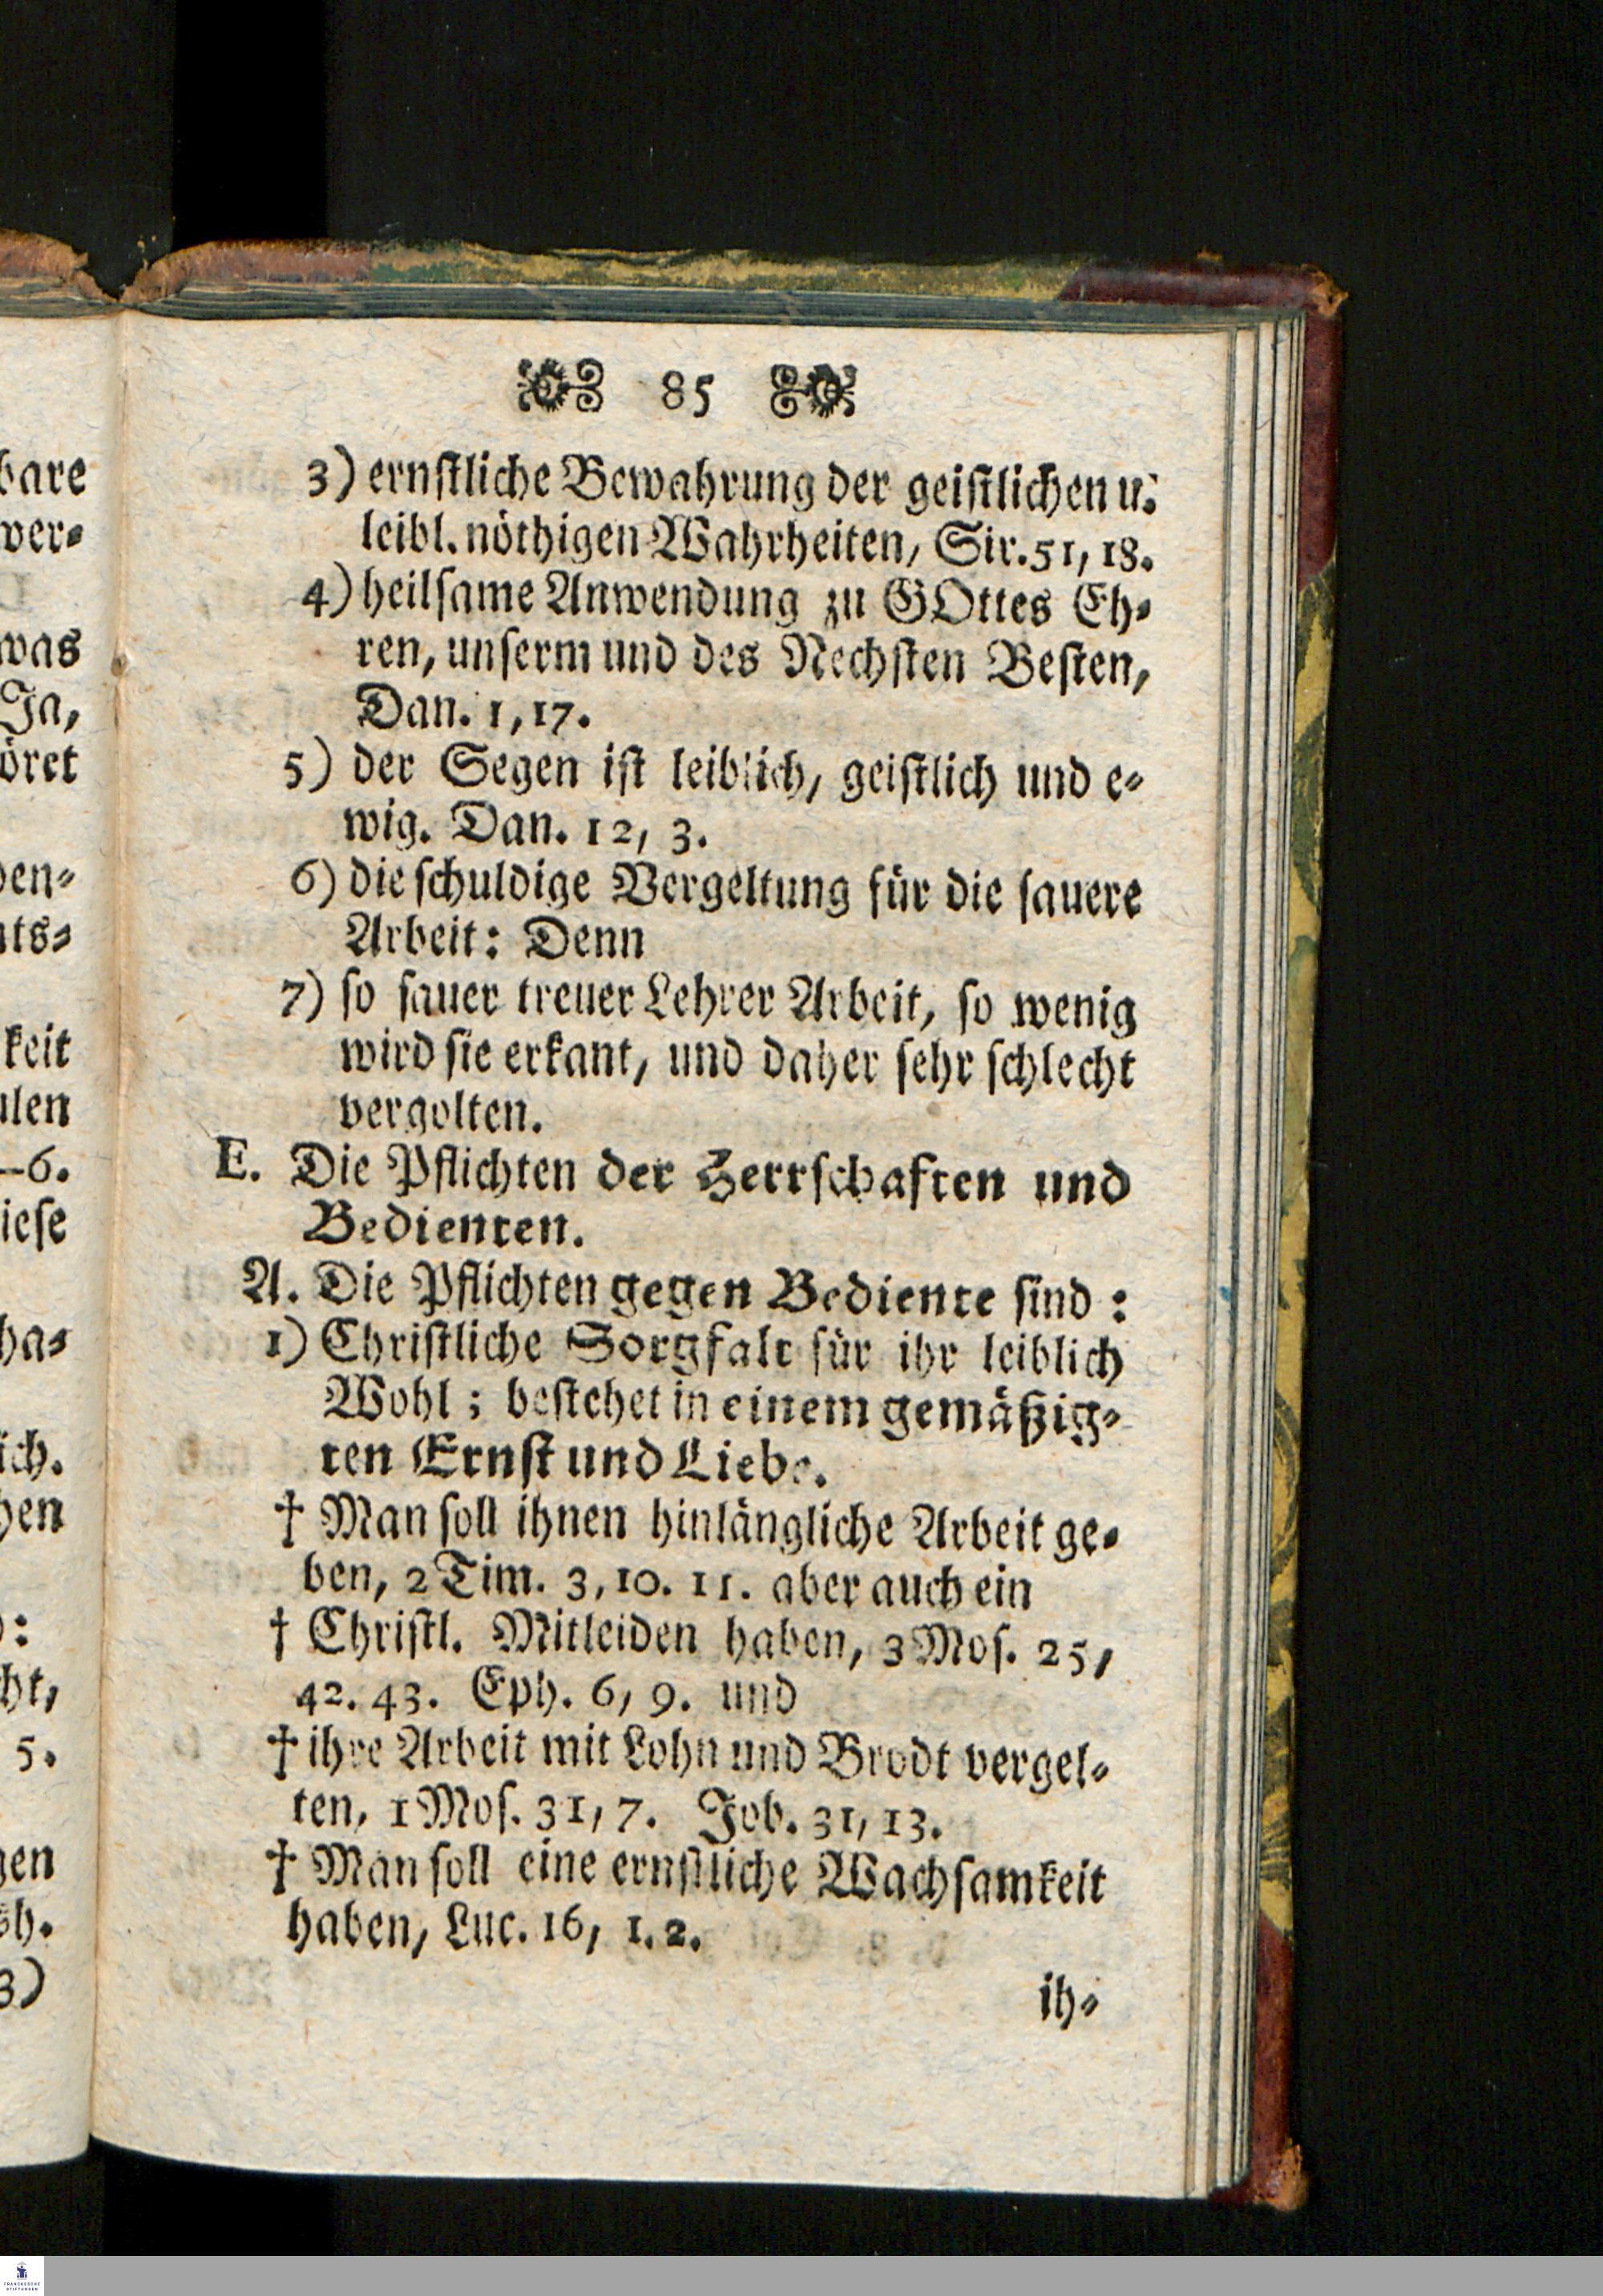 85
3) ernſtliche Bewahrung der geiſtlichen u.
leibl. nöthigen Wahrheiten, Sir. 51, 18.
4) heilſame Anwendung zu GOttes Eh-
ren, unſerm und des Nechſten Beſten,
Dan. 1, 17.
5) der Segen iſt leiblich, geiſtlich und e-
wig. Dan. 12, 3.
6) die ſchuldige Vergeltung für die ſauere
Arbeit: Denn
7) ſo ſauer treuer Lehrer Arbeit, ſo wenig
wird ſie erkant, und daher ſehr ſchlecht
vergolten.
E. Die Pflichten der Herrſchaften und
Bedienten.
A. Die Pflichten gegen Bediente ſind:
1) Chriſtliche Sorgfalt für ihr leiblich
Wohl; beſtehet in einem gemäßig-
ten Ernſt und Liebe.
† Man ſoll ihnen hinlängliche Arbeit ge-
ben, 2 Tim. 3, 10. 11. aber auch ein
† Chriſtl. Mitleiden haben, 3 Moſ. 25,
42. 43. Eph. 6, 9. und
† ihre Arbeit mit Lohn und Brodt vergel-
ten, 1 Moſ. 31, 7. Job. 31, 13.
† Man ſoll eine ernſtliche Wachſamkeit
haben, Luc. 16, 1. 2.
ih-
bare
wer-
was
Ja,
öret
den-
hts-
keit
ulen
—6.
ieſe
ha-
ich.
hen
:
cht,
5.
gen
sh.
3)
FRANCKESCHE
STIFTUNGEN